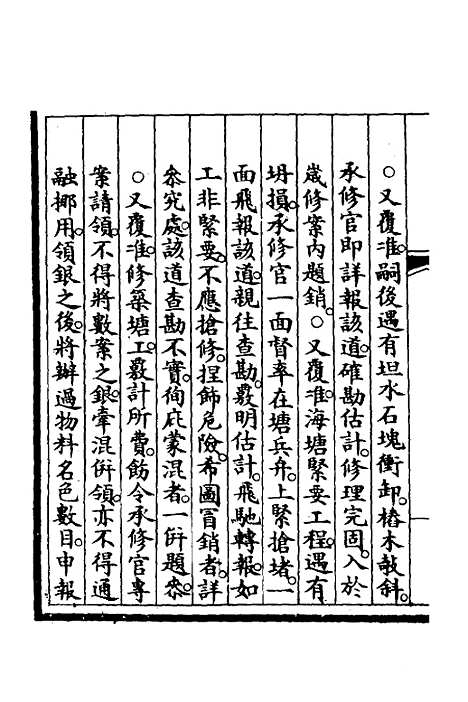 ○又覆准嗣後遇有坦水石塊衝卸。樁木欹斜。
承修官即詳報該道。確勘估計。修理完固。入於
歲修案內題銷。○又覆准海塘緊要工程。遇有
坍損。承修官一面督率在塘兵弁。上緊搶堵。一
面飛報該道。親往查勘。覈明估計。飛馳轉報。如
工非緊要。不應搶修。捏飾危險。布圖冒銷者。詳
叅究處。該道查勘不實。徇庇蒙混者。一併題叅。
○又覆准修築塘工。覈計所費。飭令承修官專
案請領。不得將數案之銀。牽混併領。亦不得通
融挪用。領銀之後。將辦過物料名色數目。申報